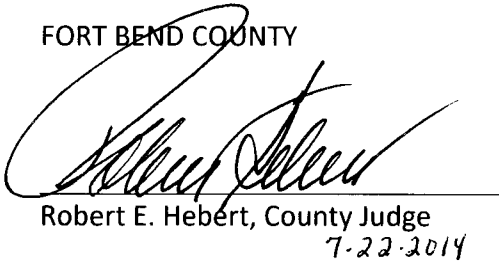 FORT BEND COUNTY
Robert E. Hebert, County Judge
7-22-2014